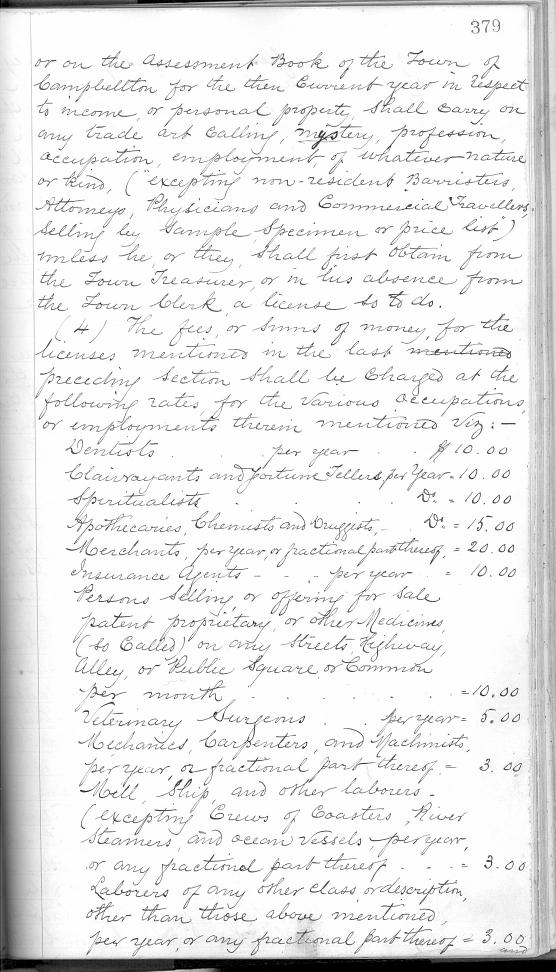 379
or on the Assessment Book of the Town of
Campbellton for the then Current year in respect
to income, or personal property, shall carry on
any trade art Calling, mystery, profession,
occupation, employment of whatever nature
or kind, ("excepting non-resident Barristers,
Attorneys, Physicians and Commercial Travellers,
selling by Sample, Specimen or price list")
unless he, or they, shall first obtain from
the Town Treasurer, or in his absence from
the Town Clerk a license so to do.
(4) The fees, or sums of money, for the
licenses mentioned in the last mentioned
preceding Section shall be Charged at the
following rates, for the various occupations,
or employments therein mentioned viz:—
Dentists . . per year . . $10.00
Clairvoyants and Fortune Tellers, per Year = 10.00
Spiritualists . . . Do. = 10.00
Apothecaries, Chemists and Druggists, - Do. = 15.00
Merchants, per year, or fractional part thereof, = 20.00
Insurance Agents - . . per year . = 10.00
Persons selling or offering for Sale
patent proprietary, or other Medicines,
(so Called) on any Streets, Highway,
Alley, or Public Square, or Common
per month . . . . . = 10.00
Veterinary Surgeons . . per year = 5.00
Mechanics, Carpenters, and Machinists,
per year, or fractional part thereof = 3.00
Mill, Ship, and other laborers -
(excepting Crews of Coasters, River
Steamers, and ocean Vessels, per year,
or any fractional part thereof . . = 3.00
Laborers of any other class, or description,
other than those above mentioned,
per year, or any fractional part thereof = 3.00
and